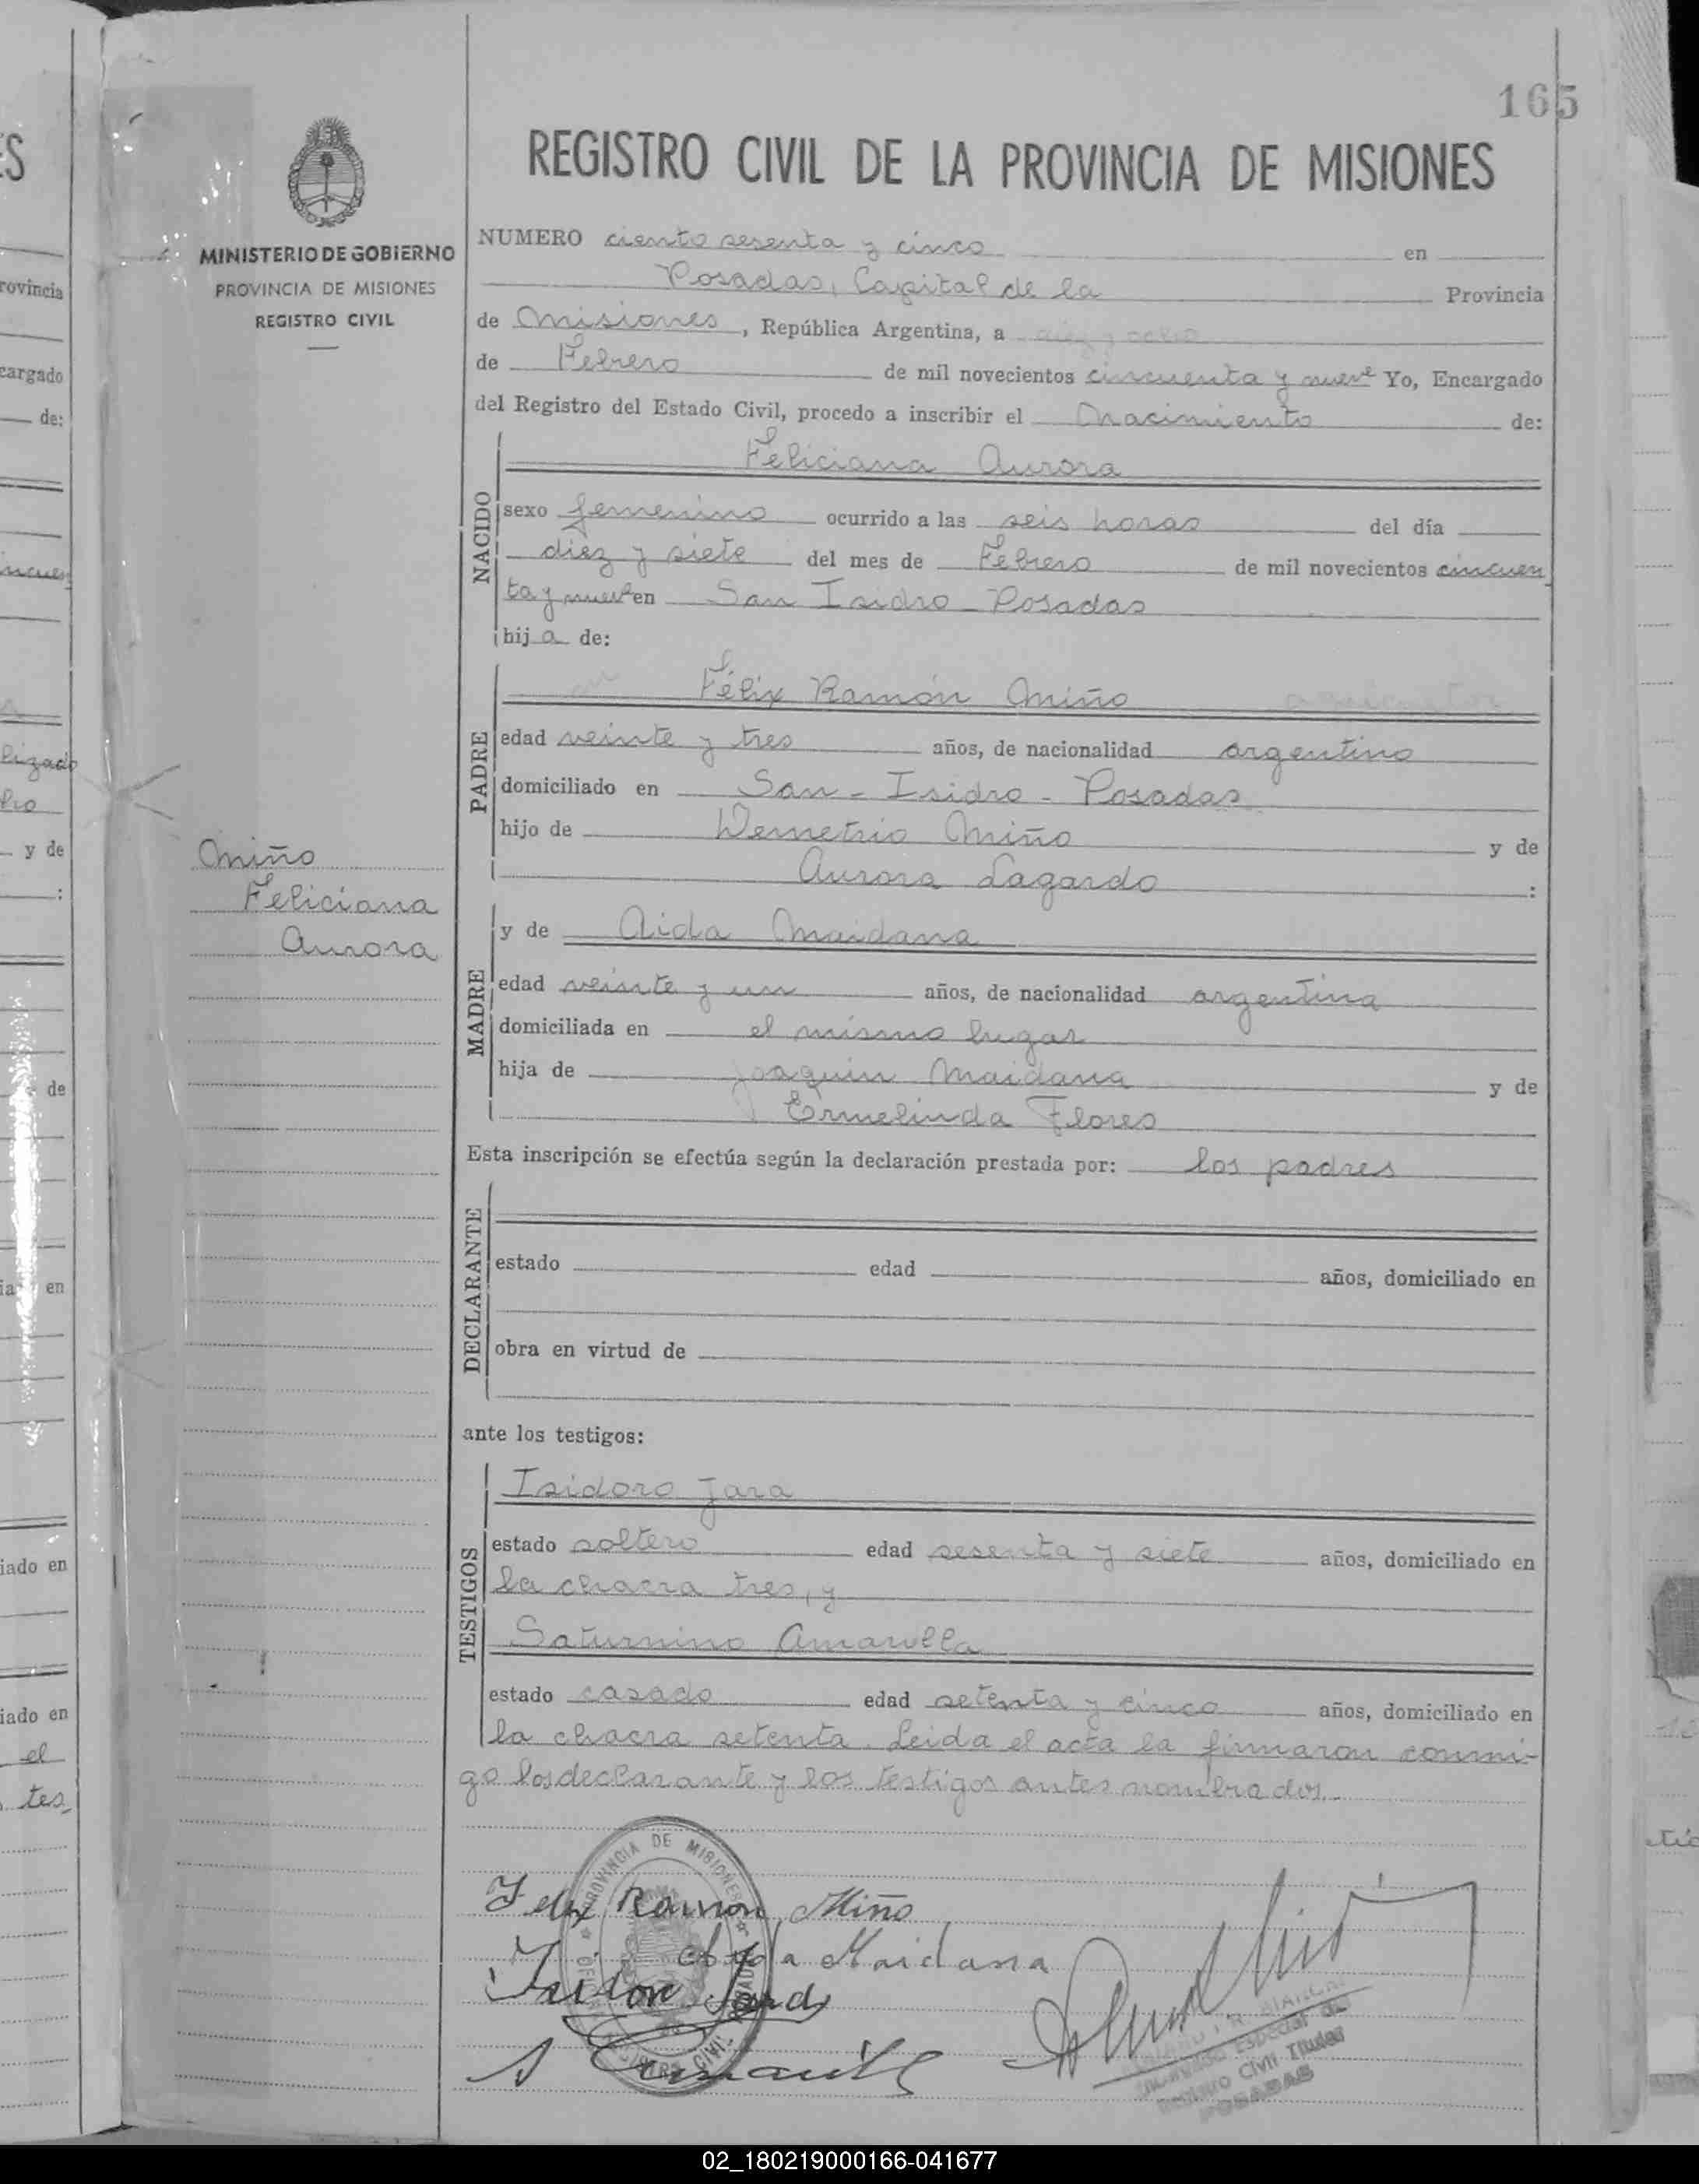 165
REGISTRO CIVIL DE LA PROVINCIA DE MISIONES
MINISTERIO DE GOBIERNO
PROVINCIA DE MISIONES
REGISTRO CIVIL
NUMERO ciento sesenta y cinco en
Posadas, Capital de la Provincia
de Misiones, República Argentina, a diez y ocho
de Febrero de mil novecientos cincuenta y nueve Yo, Encargado
del Registro del Estado Civil, procedo a inscribir el Nacimiento de:
NACIDO
Feliciana Aurora
sexo femenino ocurrido a las seis horas del día
diez y siete del mes de Febrero de mil novecientos cincuen
ta y nueve en San Isidro - Posadas
hija de:
PADRE
Félix Ramón Miño
edad veinte y tres años, de nacionalidad argentino
domiciliado en San - Isidro - Posadas
hijo de Demetrio Miño y de
Aurora Lagardo :
Miño
Feliciana
Aurora
MADRE
y de Aida Maidana
edad veinte y un años, de nacionalidad argentina
domiciliada en el mismo lugar
hija de Joaquin Maidana y de
Ermelinda Flores
Esta inscripción se efectúa según la declaración prestada por: los padres
DECLARANTE
estado edad años, domiciliado en
obra en virtud de
ante los testigos:
TESTIGOS
Isidoro Jara
estado soltero edad sesenta y siete años, domiciliado en
la chacra tres, y
Saturnino Amarilla
estado casado edad setenta y cinco años, domiciliado en
la chacra setenta. Leida el acta la firmaron conmi-
go los declarante y los testigos antes nombrados.
PROVINCIA DE MISIONES
Felix Ramon Miño
Ayda Maidana
Isidoro Jara
Especial de
Registro Civil Titular
POSADAS
02_180219000166-041677